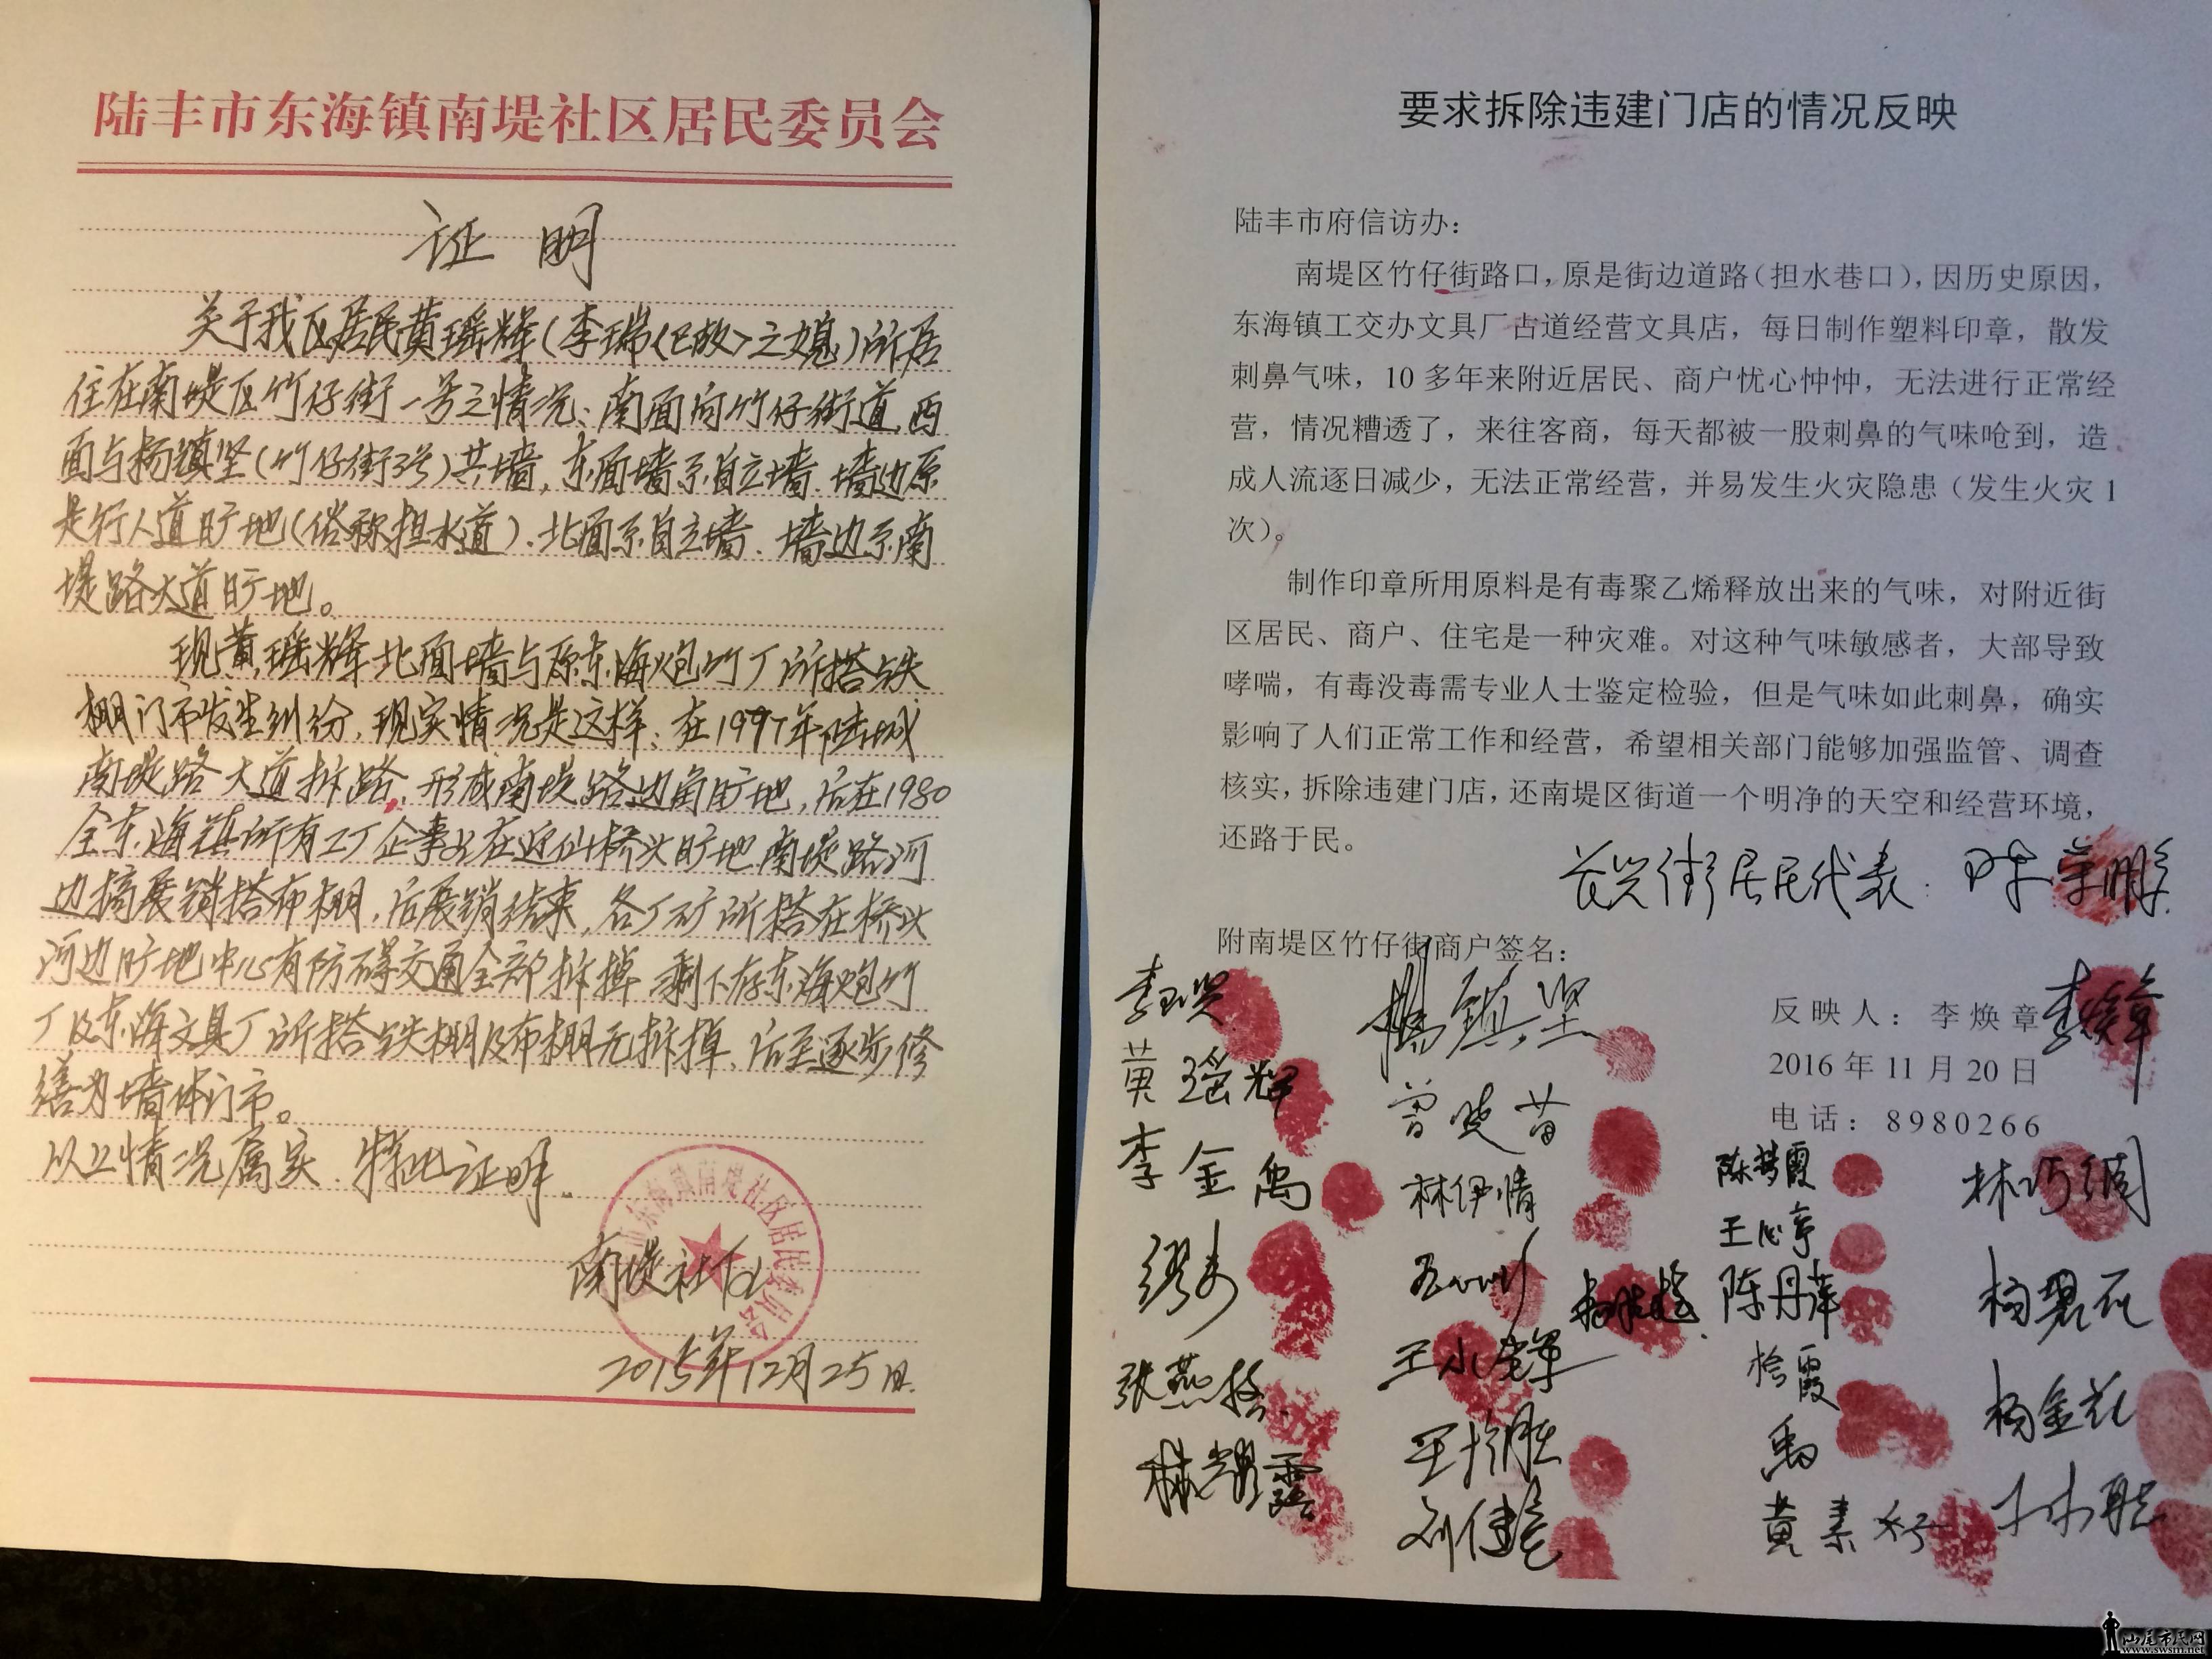 陆丰市东海镇南堤社区居民委员会
证明
关于我区居民黄瑶辉(李瑞<已故>之媳)所居
住在南堤区竹仔街一号之情况:南面向竹仔街道,西
面与杨镇坚(竹仔街3号)共墙,东面墙系自立墙.墙边原
是行人道旷地(俗称担水道).北面系自立墙.墙边系南
堤路大道旷地。
现黄瑶辉北面墙与原东海炮竹厂所搭铁
棚门市发生纠纷,现实情况是这样:在1997年陆城
南堤路大道拆路,形成南堤路边角旷地,后在1980
全东海镇所有工厂企事业在迎仙桥头旷地南堤路河
边搞展销搭布棚,后展销结束,各厂矿所搭在桥头
河边旷地中心有防碍交通全部拆掉 剩下存东海炮竹
厂及东海文具厂所搭铁棚及布棚无拆掉,后至逐步修
缮为墙体门市。
以上情况属实.特此证明.
南堤社区
2015年12月25日.
要求拆除违建门店的情况反映
陆丰市府信访办：
南堤区竹仔街路口，原是街边道路（担水巷口），因历史原因，
东海镇工交办文具厂占道经营文具店，每日制作塑料印章，散发
刺鼻气味，10 多年来附近居民、商户忧心忡忡，无法进行正常经
营，情况糟透了，来往客商，每天都被一股刺鼻的气味呛到，造
成人流逐日减少，无法正常经营，并易发生火灾隐患（发生火灾 1
次）。
制作印章所用原料是有毒聚乙烯释放出来的气味，对附近街
区居民、商户、住宅是一种灾难。对这种气味敏感者，大部导致
哮喘，有毒没毒需专业人士鉴定检验，但是气味如此刺鼻，确实
影响了人们正常工作和经营，希望相关部门能够加强监管、调查
核实，拆除违建门店，还南堤区街道一个明净的天空和经营环境，
还路于民。
长兴街居民代表：陈荣鹏
附南堤区竹仔街商户签名：
反映人：李焕章 李焕章
2016 年 11 月 20 日
电话：8980266
黄瑶辉
杨镇坚
曾晓苗
李金禹
林伊情
陈梦霞
王心亭
陈丹萍
黄素
杨金花
王小
刘佳
张燕
汕尾市民网
www.swsm.net